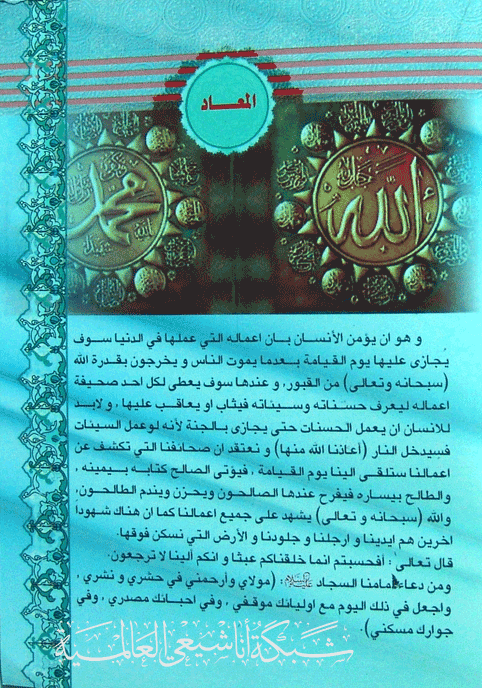 المعاد
محمد
الله
و هو ان يؤمن الأنسان بان اعماله التي عملها في الدنيا سوف
يُجازى عليها يوم القيامة بعدما يموت الناس و يخرجون بقدرة الله
(سبحانه وتعالى) من القبور، و عندها سوف يعطى لكل احد صحيفة
اعماله ليعرف حسناته وسيئاته فيثاب او يعاقب عليها ، و لابد
للانسان ان يعمل الحسنات حتى يجازى بالجنة لأنه لوعمل السيئات
فسيدخل النار (أعاذنا الله منها) و نعتقد ان صحائفنا التي تكشف عن
اعمالنا ستلقى الينا يوم القيامة ، فيؤتى الصالح كتابه بيمينه ،
والطالح بيساره فيفرح عندها الصالحون ويحزن ويندم الطالحون،
والله (سبحانه و تعالى) يشهد على جميع اعمالنا كما ان هناك شهوداً
اخرين هم ايدينا و ارجلنا و جلودنا و الأرض التي نسكن فوقها.
قال تعالى : أفحسبتم انما خلقناكم عبثا و انكم ألينا لا ترجعون.
ومن دعاء إمامنا السجاد عليه السلام : (مولاي وأرحمني في حشري و نشري ،
واجعل في ذلك اليوم مع اوليائك موقفي ، وفي احبائك مصدري ، وفي
جوارك مسكني).
شبكة أنا شيعي العالمية